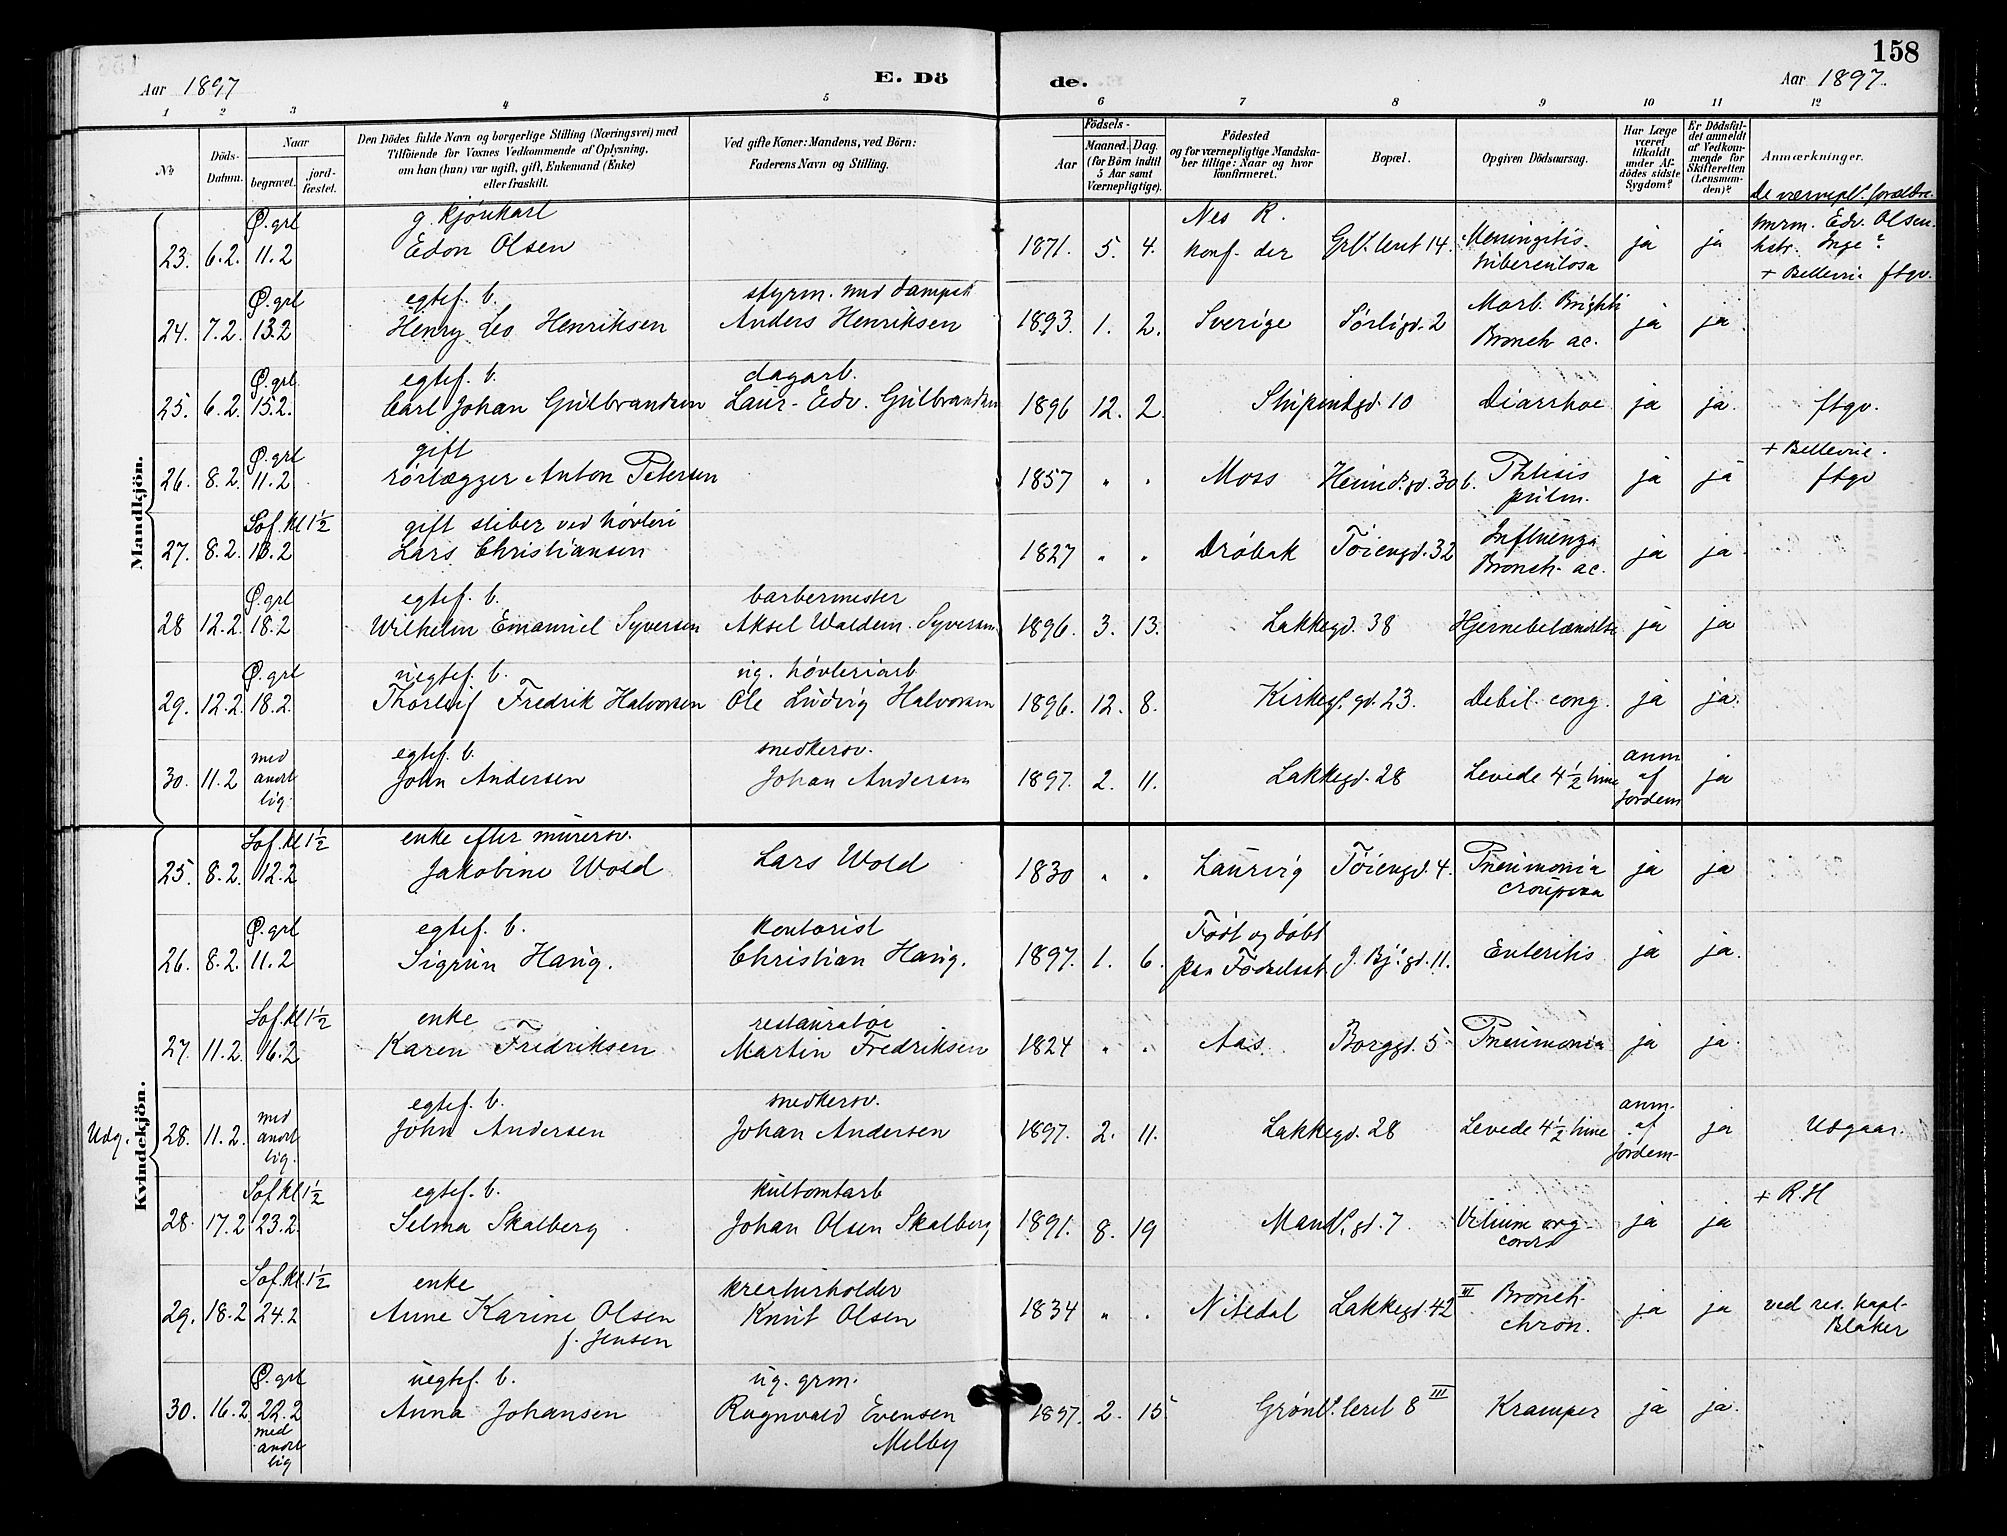 158
Aar 1897
E. Dö
de.
Aar 1897.
1 2 3 4 5 6 7 8 9 10 11 12
No
Döds-Datum.
Naar
begravet.
jord-fæstet.
Den Dödes fulde Navn og borgerlige Stilling (Næringsvei) med
Tilföiende for Voxnes Vedkommende af Oplysning,
om han (hun) var ugift, gift, Enkemand (Enke)
eller fraskilt.
Ved gifte Koner: Mandens, ved Börn:
Faderens Navn og Stilling.
Födsels-
Aar
Maaned. Dag.
(for Börn indtil
5 Aar samt
Værnepligtige).
Födested
og for værnepligtige Mandska-
ber tillige: Naar og hvor
konfirmeret.
Bopæl.
Opgiven Dödsaarsag.
Har Læge
været
tilkaldt
under Af-
dödes sidste
Sygdom?
Er Dödsfal-
det anmeldt
af Vedkom-
mende for
Skifteretten
(Lensman-
den)?
Anmærkninger.
De værnepl. forældre.
Mandkjön.
Ø. grl g. Nes R. Edv. Olsen.
23. 6.2. 11.2 Edon Olsen 1871. 5. 4. konf. der Grl. leret 14. Meningitis tuberculosa ja ja Inge?
+ Bellevue ftgv.
Ø. grl egtef. b. styrm. med dampsk
24. 7.2. 13.2 Henry Leo Henriksen Anders Henriksen 1893. 1. 2. Sverige Sörligd. 2 Morb. Brightii Bronch ac. ja ja
Ø. grl. egtef. b. dagarb.
25. 6.2. 15.2. Carl Johan Gulbrandsen Laur. Edv. Gulbrandsen 1896 12. 2. Stupendgd. 10 Diarrhoe ja ja. ftgv.
Ø. grl gift + Bellevue.
26. 8.2. 11.2 rörlægger Anton Petersen 1857 " " Moss Heimd. gd. 30 b. Phtisis pulm. ja ja ftgv
Sof. kl 1½ gift sliber ved hövleri
27. 8.2. 13.2 Lars Christiansen 1827 " " Dröbak Töiengd. 32 Influenza Bronch. ac. ja ja
Ø. grl egtef. b. barbermester
28 12.2. 18.2 Wilhelm Emanuel Syversen Aksel Waldem. Syversen 1896. 3. 13. Lakkegd. 38 Hjernebetændelse ja ja
Ø. grl uegtef. b. ug. hövleriarb
29. 12.2. 18.2. Thorleif Fredrik Halvorsen Ole Ludvig Halvorsen 1896. 12. 8. Kirkeg. gd. 23. Debil. cong. ja ja.
med egtef. b. snedkersv. anm
30. 11.2 anort lig. John Andersen Johan Andersen 1897. 2. 11. Lakkegd. 28 Levede 4½ time af Jordem ja
Kvindekjön.
Sof. kl 1½ enke efter murersv.
25. 8.2. 12.2 Jakobine Wold Lars Wold 1830 " " Laurvig Töiengd. 4. Pneumonia crouposa ja ja
Ø. grl egtef. b. kontorist Födt og döbt
26. 8.2. 11.2 Sigrun Haug. Christian Haug. 1897. 1. 6. paa Födselsst J. Bj. gd. 11. Enteritis ja ja.
Sof. kl 1½ enke restauratör
27. 11.2. 16.2 Karen Fredriksen Martin Fredriksen 1824 " " Aas. Borggd. 5 Pneumonia ja ja.
med egtef. b. snedkersv. anm.
Udg. 28. 11.2. anort lig. John Andersen Johan Andersen 1897. 2. 11. Lakkegd. 28 Levede 4½ time af Jordem- ja Udgaar.
Sof. kl 1½ egtef. b. kultomtarb + R.H
28. 17.2 23.2. Selma Skalberg Johan Olsen Skalberg 1891. 8. 19 Mandl. gd. 7. Vitium org. cordis ja ja
Sof. kl. 1½ enke kreaturholder
29. 18.2 24.2 Anne Karine Olsen f. Jensen Knut Olsen 1834 " " Nitedal Lakkegd. 42 III Bronch. chron. ja ja ved res. kapl. Blaker
Ø. grl uegtef. b. ug. grm.
30. 16.2 22.2 med anort lig Anna Johansen Ragnvald Evensen Melby 1897. 2. 15 Grønl. leret 8 III Kramper ja ja.